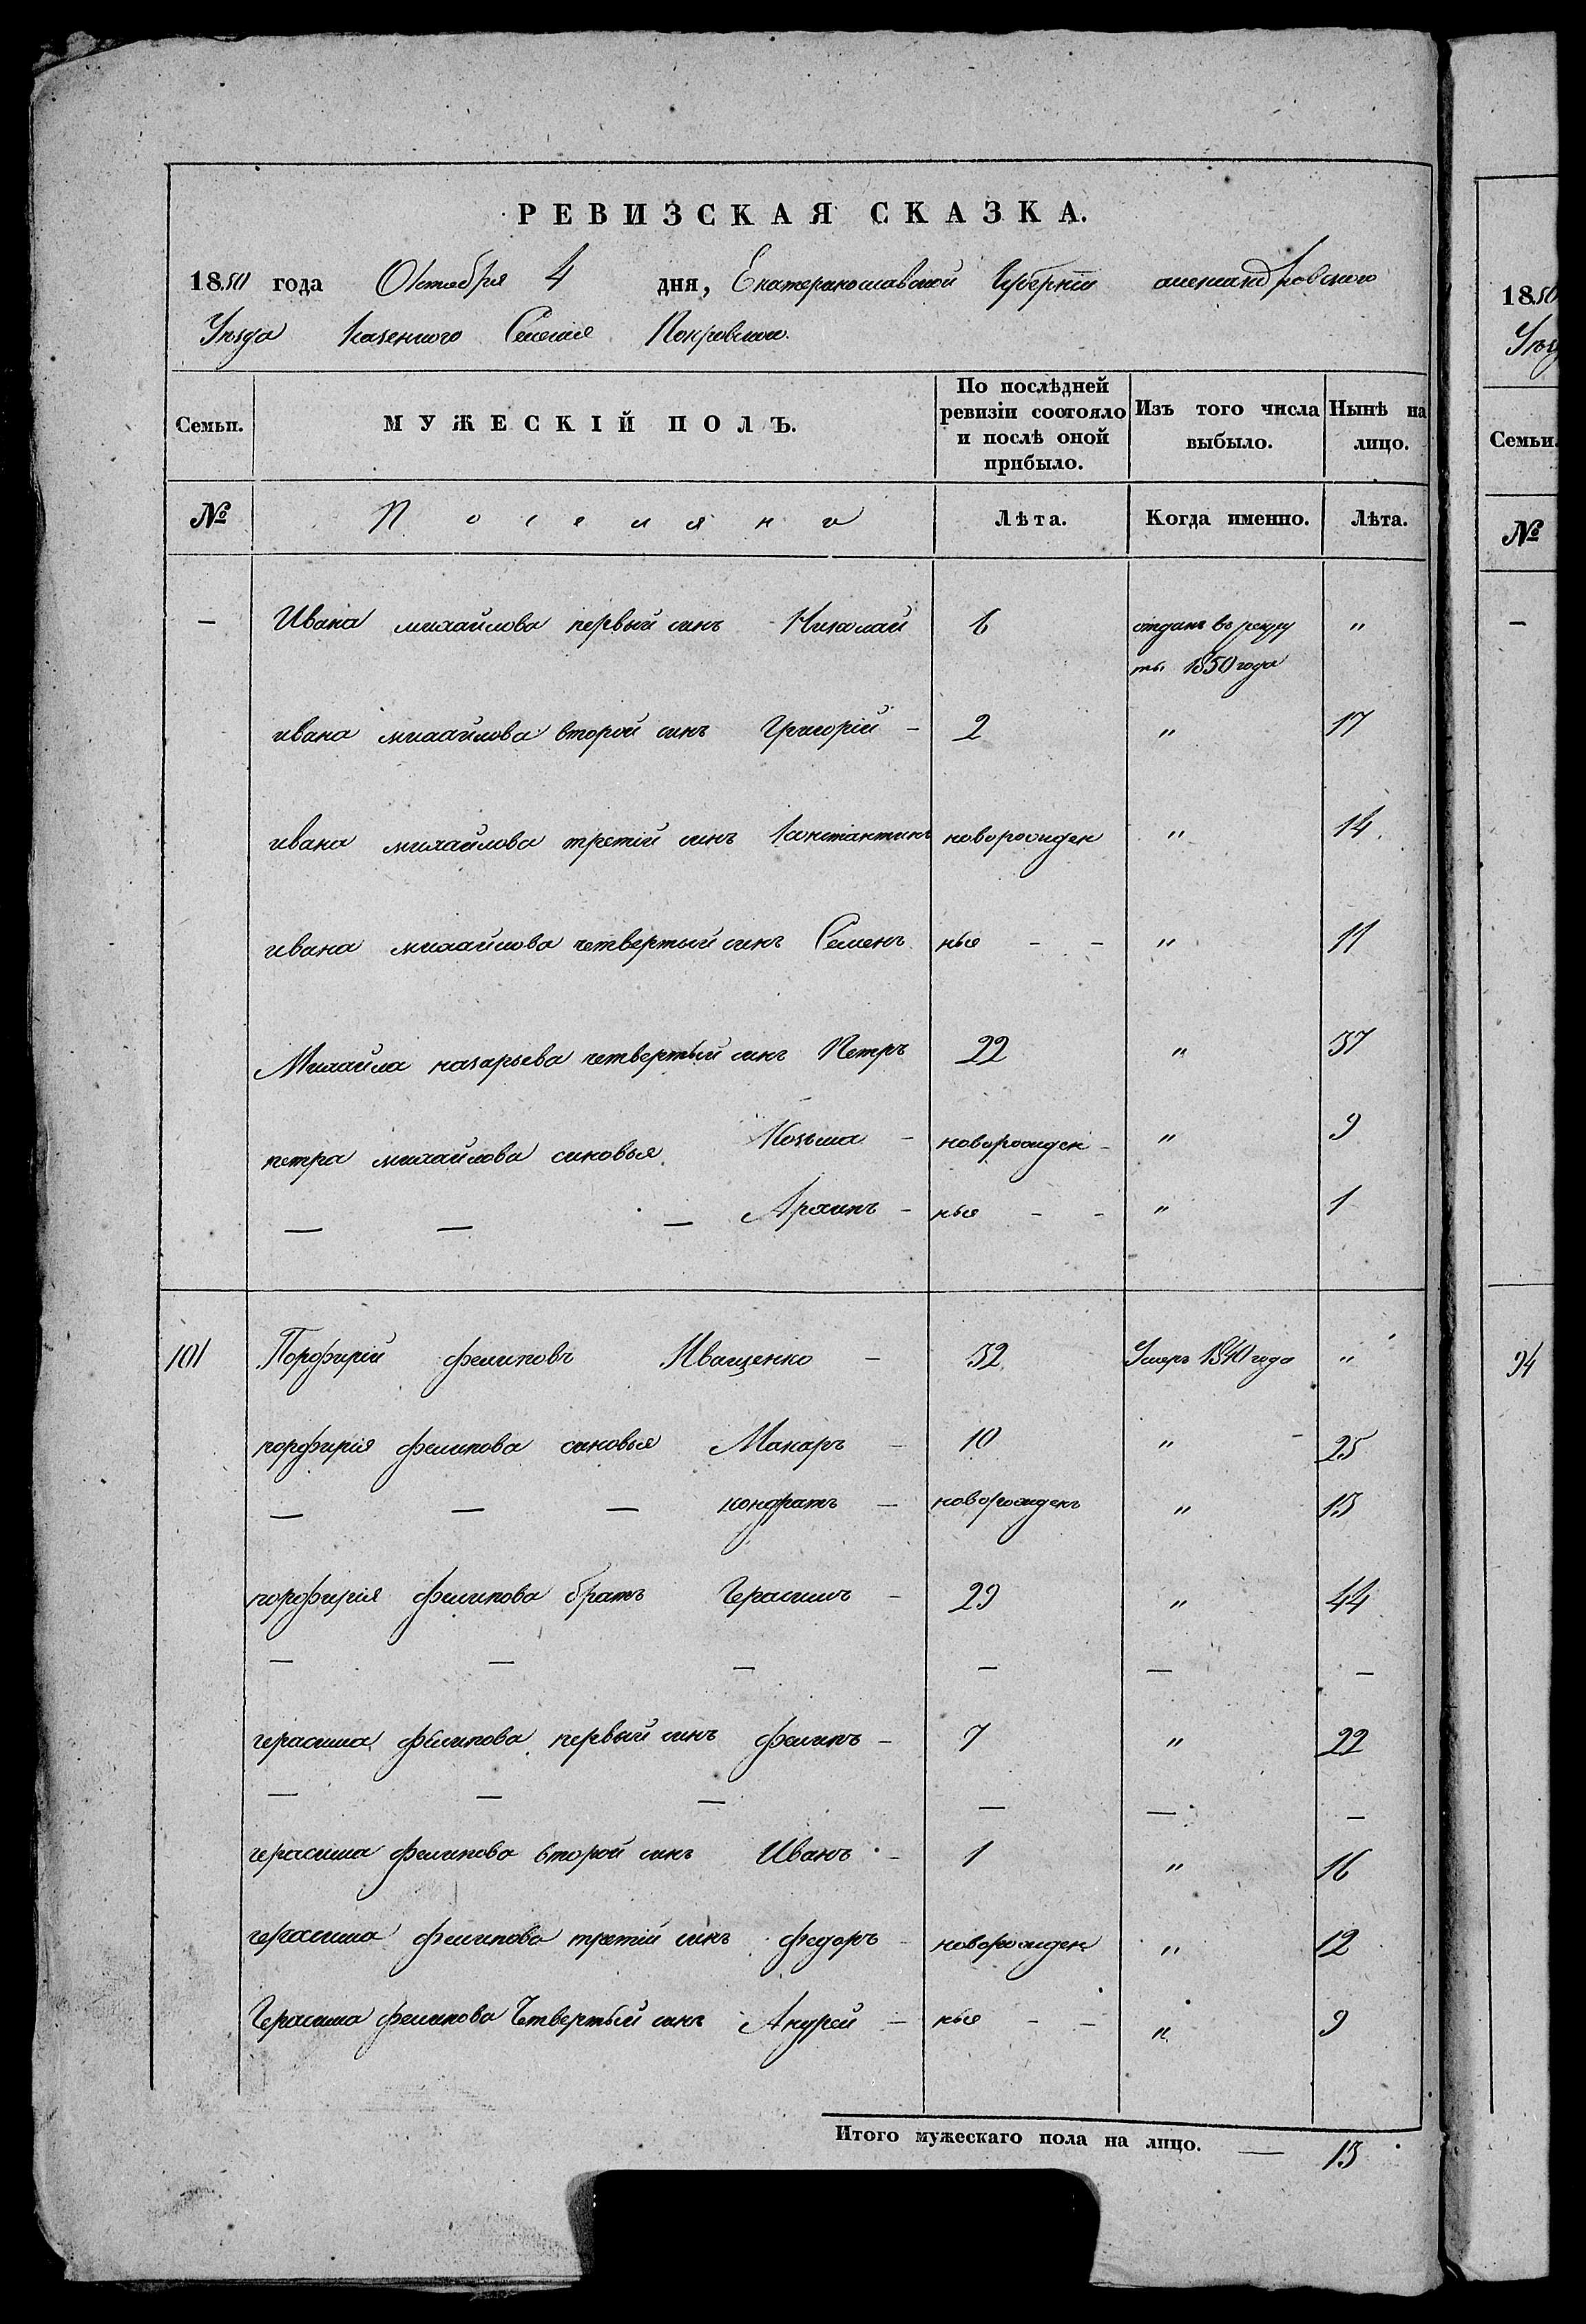 РЕВИЗСКАЯ СКАЗКА.
1850 года Октября 4 дня, Екатеринославской Губерніи александровского
Уезда Казенного Селенія Покровскои.
Семьи. МУЖЕСКІЙ ПОЛЪ. По послѣдней ревизіи состояло и послѣ оной прибыло. Изъ того числа выбыло. Нынѣ на лицо.
№ Поселяни Лѣта. Когда именно. Лѣта.
— Ивана михайлова первый синъ Николай 6 отданъ в рекру "
ты 1850 года
ивана михайлова второй синъ Григорій — 2 " 17
ивана михайлова третій синъ Константинъ новорожден " 14
ивана михайлова четвертый синъ Семенъ ные - - " 11
Михайла назарьева четвертый синъ Петръ 22 " 37
петра михайлова синовья Козьма — новорожден - " 9
— — — Архипъ - ные - - " 1
101 Порфирій филиповъ Иващенко — 32 Умеръ 1840 года "
порфирія филипова синовья Макаръ — 10 " 25
— — — кондратъ — новорожденъ " 13
порфирія филипова братъ Герасимъ — 29 " 44
— — — — — —
герасима филипова первый синъ филипъ — 7 " 22
— — — — — —
герасима филипова второй синъ Иванъ — 1 " 16
герасима филипова третій синъ федоръ - новорожден " 12
Герасима филипова Четвертый синъ Андрей — ные - - " 9
Итого мужескаго пола на лицо. — 13
1850
Уезд
Семьи.
№
—
94